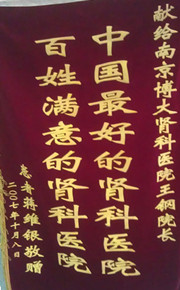 献给南京博大肾科医院王钢院长
中国最好的肾科医院
百姓满意的肾科医院
患者蒋维银敬赠
二〇〇七年十月八日